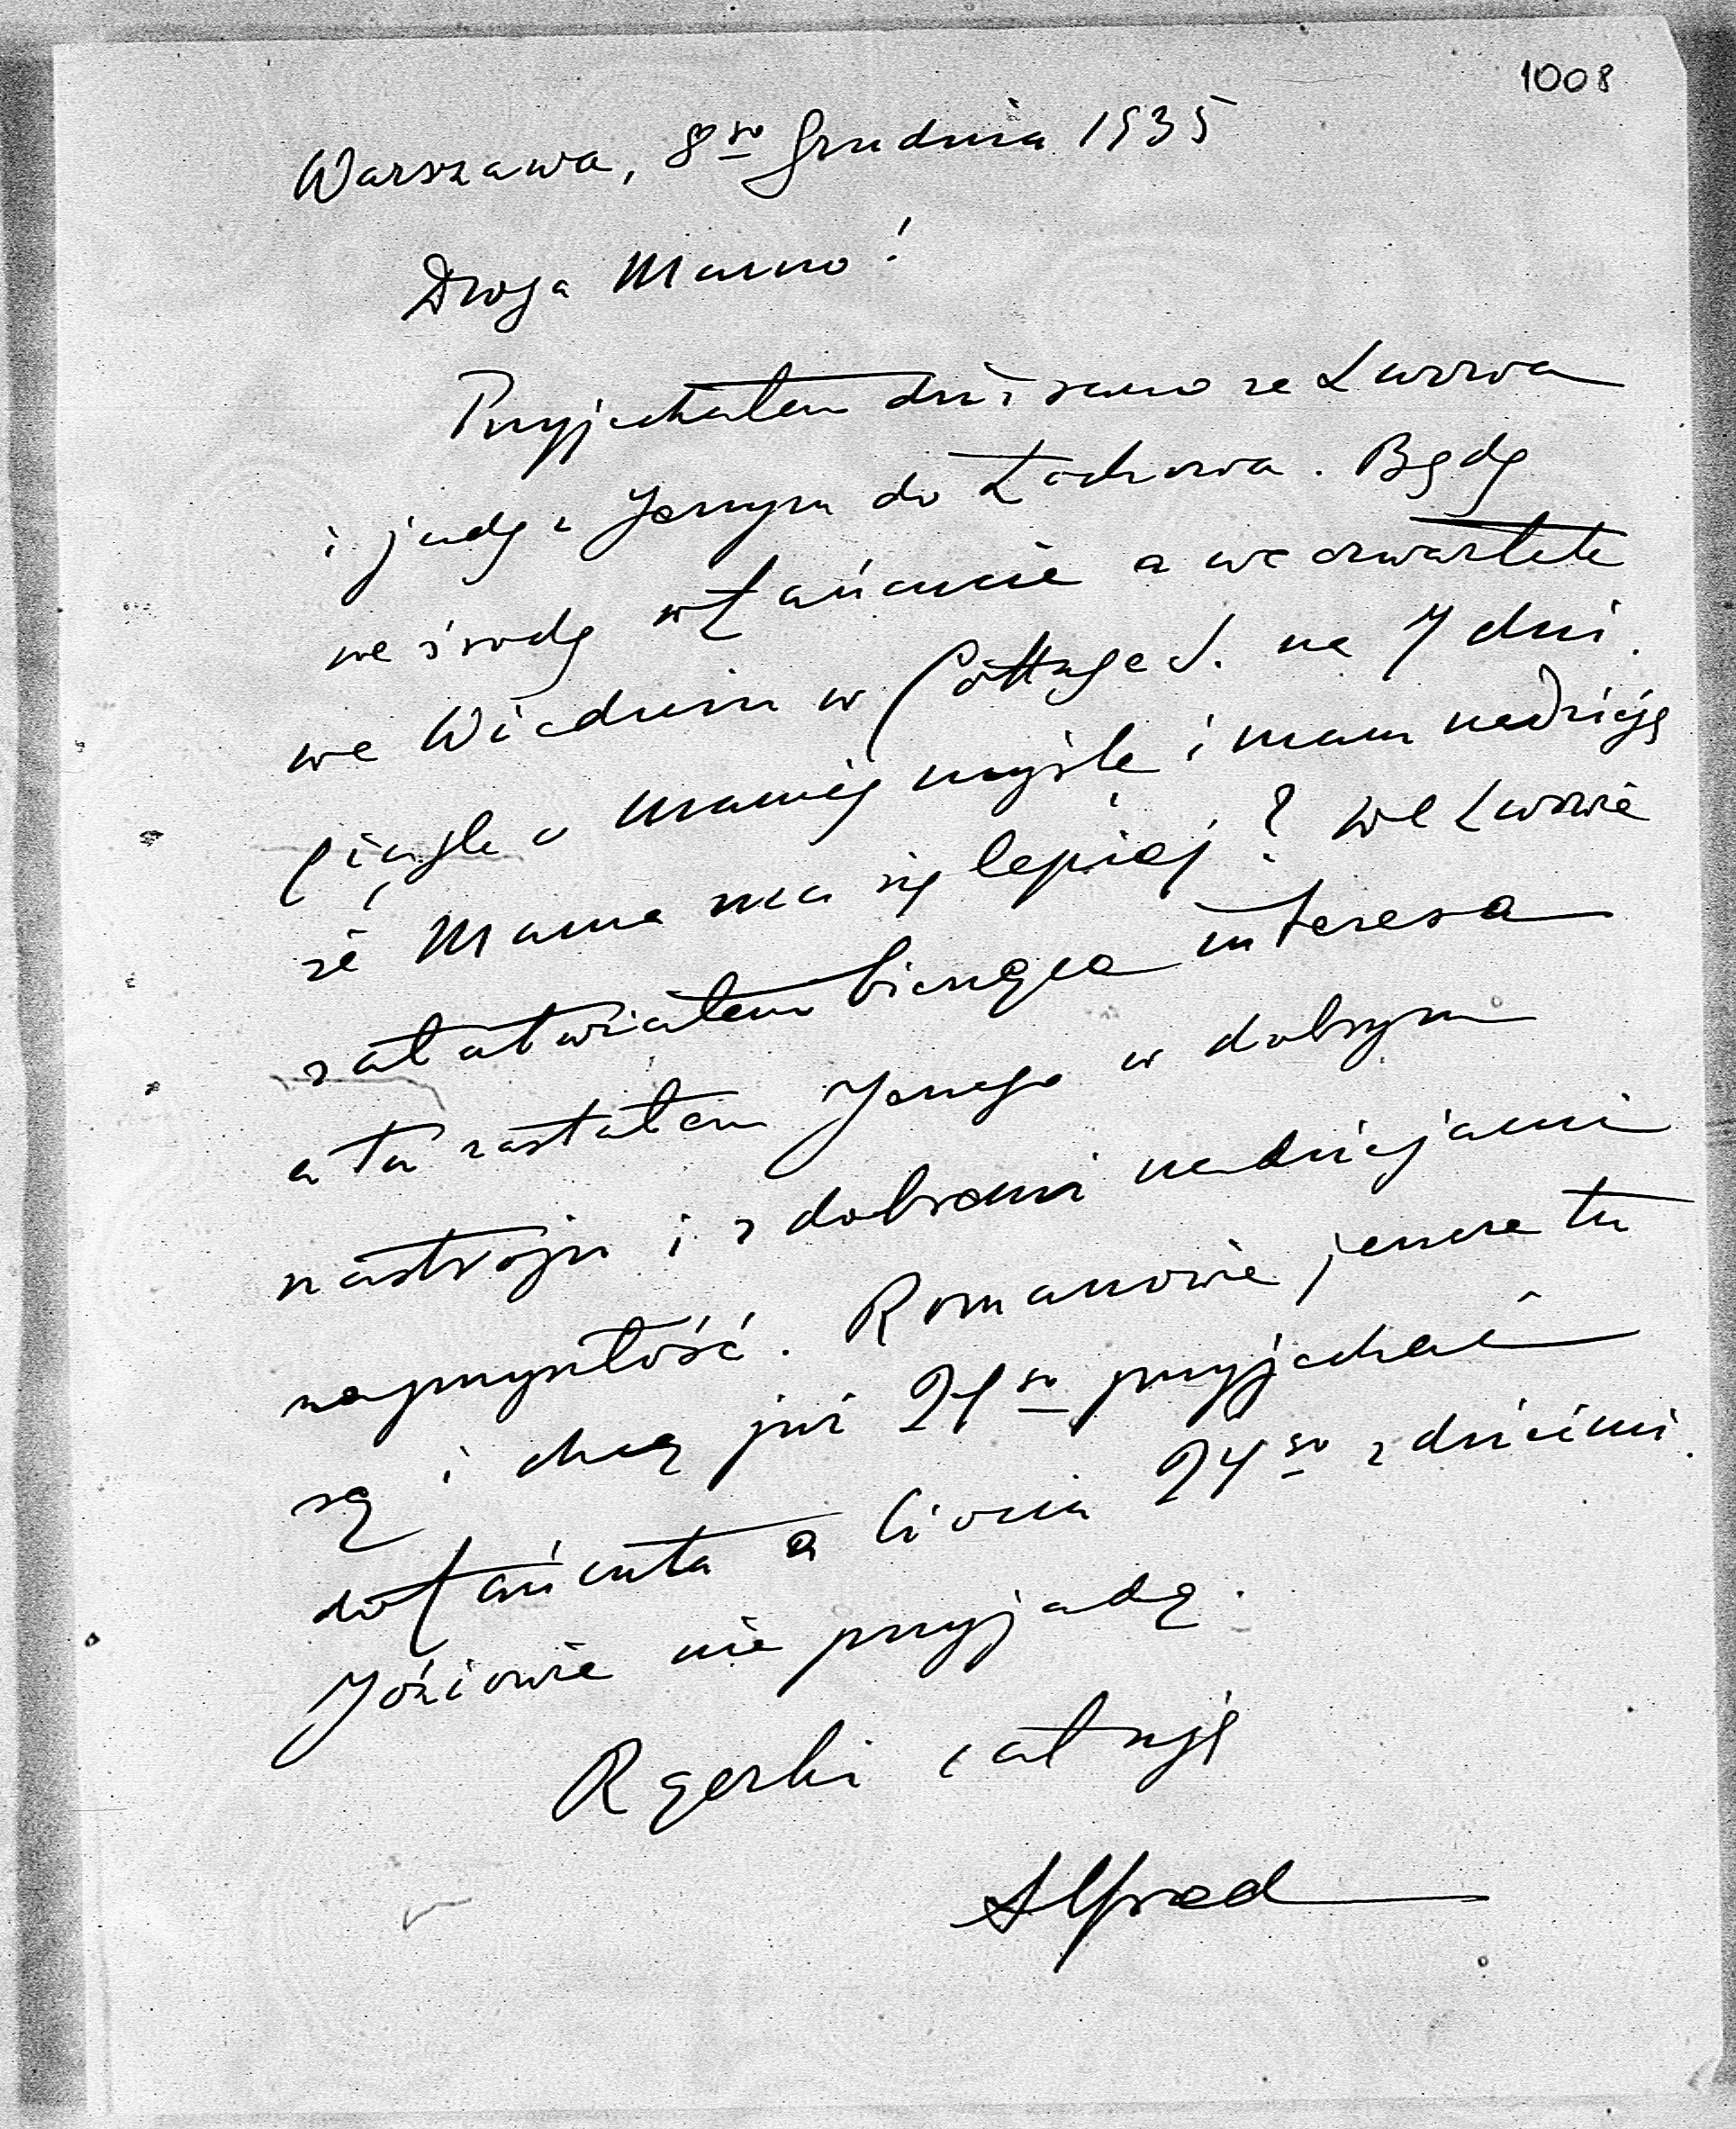 1008
Warszawa, 8go Grudnia 1935
Droga Mamo!
Przyjechałem dziś rano ze Lwowa
i jadę z Jerzym do Łochowa. Będę
we środę w Łańcucie a we czwartek
we Wiedniu w Cottage S. na 7 dni.
Ciągle o Mamie myślę i mam nadzieję
że Mama ma się lepiej? We Lwowie
załatwiałem bieżące interesa
a tu zastałem Jerzego w dobrym
nastroju i z dobremi nadziejami
na przyszłość. Romanowie jeszcze tu
są i chcą już 21go przyjechać
do Łańcuta a Ciocia 24go z dziećmi.
Józiowie nie przyjadą.
Rączki całuję
Alfred